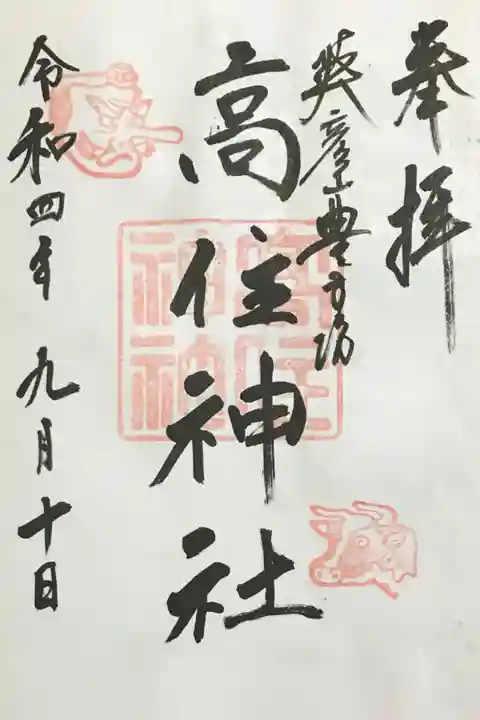 奉拝
英彦山豊前坊
高住神社
高住神社
令和四年九月十日